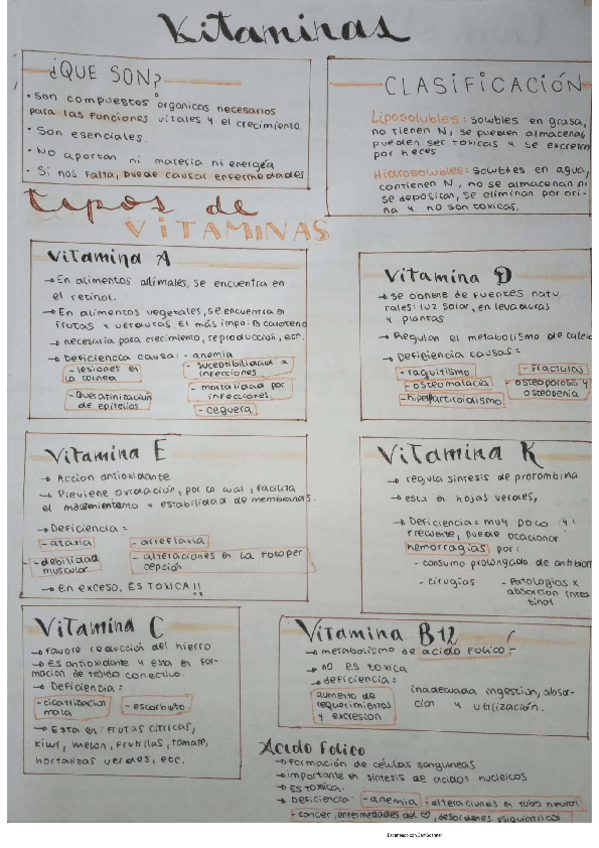 Vitaminas
¿QUE SON?
• Son compuestos organicos necesarios
para las funciones vitales y el crecimiento.
• Son esenciales.
• No aportan ni materia ni energía
- Si nos falta, puede causar enfermedades
CLASIFICACIÓN
Liposolubles: solubles en grasa,
no tienen N, se pueden almacenar,
pueden ser toxicas y se excretan
por heces
Hidrosolubles: solubles en agua,
contienen N, no se almacenan ni
se depositan, se eliminan por ori-
na y no son toxicas.
tipos de
VITAMINAS
Vitamina A
→ En alimentos animales, se encuentra en
el retinol.
→ En alimentos vegetales, se encuentra en
frutas y verduras. El más impo: B caroteno
→ necesaria para crecimiento, reproducción, etc.
→ Deficiencia causa: - anemia
- lesiones en
la cornea
- suceptibilidad a
infecciones
- Queratinizacion
de epitelios
- mortalidad por
infecciones
- ceguera
Vitamina D
→ se obtiene de fuentes natu
rales: luz solar, en levaduras
y plantas
→ Regulan el metabolismo de calcio
→ Deficiencia causas:
- raquitismo
- Fracturas
- osteomalacia
- osteoporosis y
osteopenia
- hiperpartiroidismo
Vitamina E
→ Accion antioxidante
→ Previene oxidación, por lo cual, facilita
el mantenimiento y estabilidad de membranas.
→ Deficiencia:
- ataxia
- arreflexia
- debilidad
muscular
- alteraciones en la fotoper
cepción
→ En exceso, ES TOXICA!!
Vitamina K
→ regula sintesis de protrombina
→ esta en hojas verdes,
→ Deficiencia: muy poco
frecuente, puede ocacionar
hemorragias por:
- consumo prolongado de
- cirugías
- Patologias x
absorcion intes
tinal
Vitamina C
→ Favore reducción del hierro
→ Es antioxidante y esta en for-
macion de tejido conectivo.
→ Deficiencia:
- cicatrizacion
mala
- escorbuto
→ Esta en: frutas cítricas,
kiwi, melon, frutillas, tomate,
hortalizas verdes, etc.
Vitamina B12
→ metabolismo de acido folico
→ no es toxica
→ deficiencia:
aumento de
requerimientos
y excresion
inadecuada ingestion, absor-
cion y utilización.
Acido Folico
→ formación de celulas sanguineas
→ importante en sintesis de acidos nucleicos
→ Es toxica.
→ Deficiencia: - anemia - alteraciones en tubo neural
- cancer, enfermedades del ♡, desordenes psiquiatricos
Escaneado con CamScanner